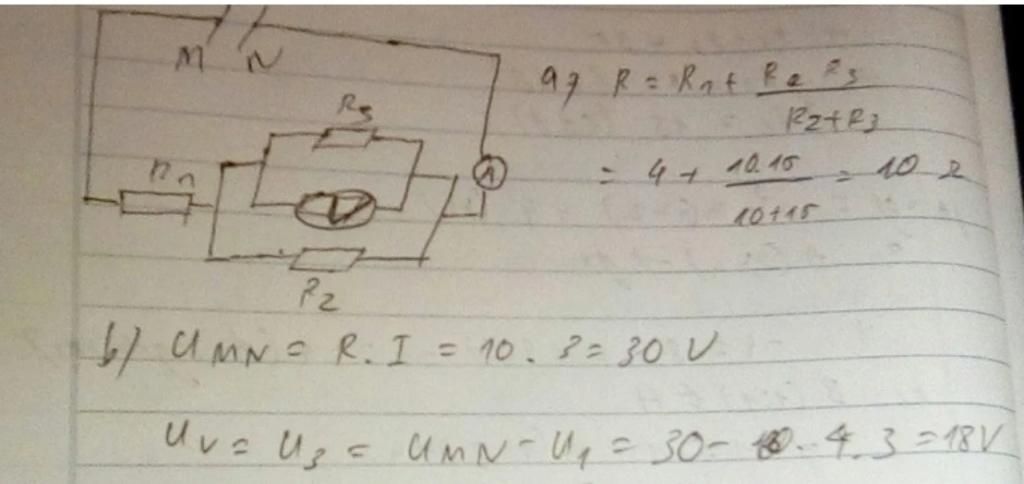 M N
R3
R1
V
A
R2
a) R = R1 + R2 R3 / R2+R3
= 4 + 10.15 / 10+15 = 10 Ω
b) UMN = R. I = 10 . 3 = 30 V
UV = U3 = UMN - U1 = 30 - 4.3 = 18V